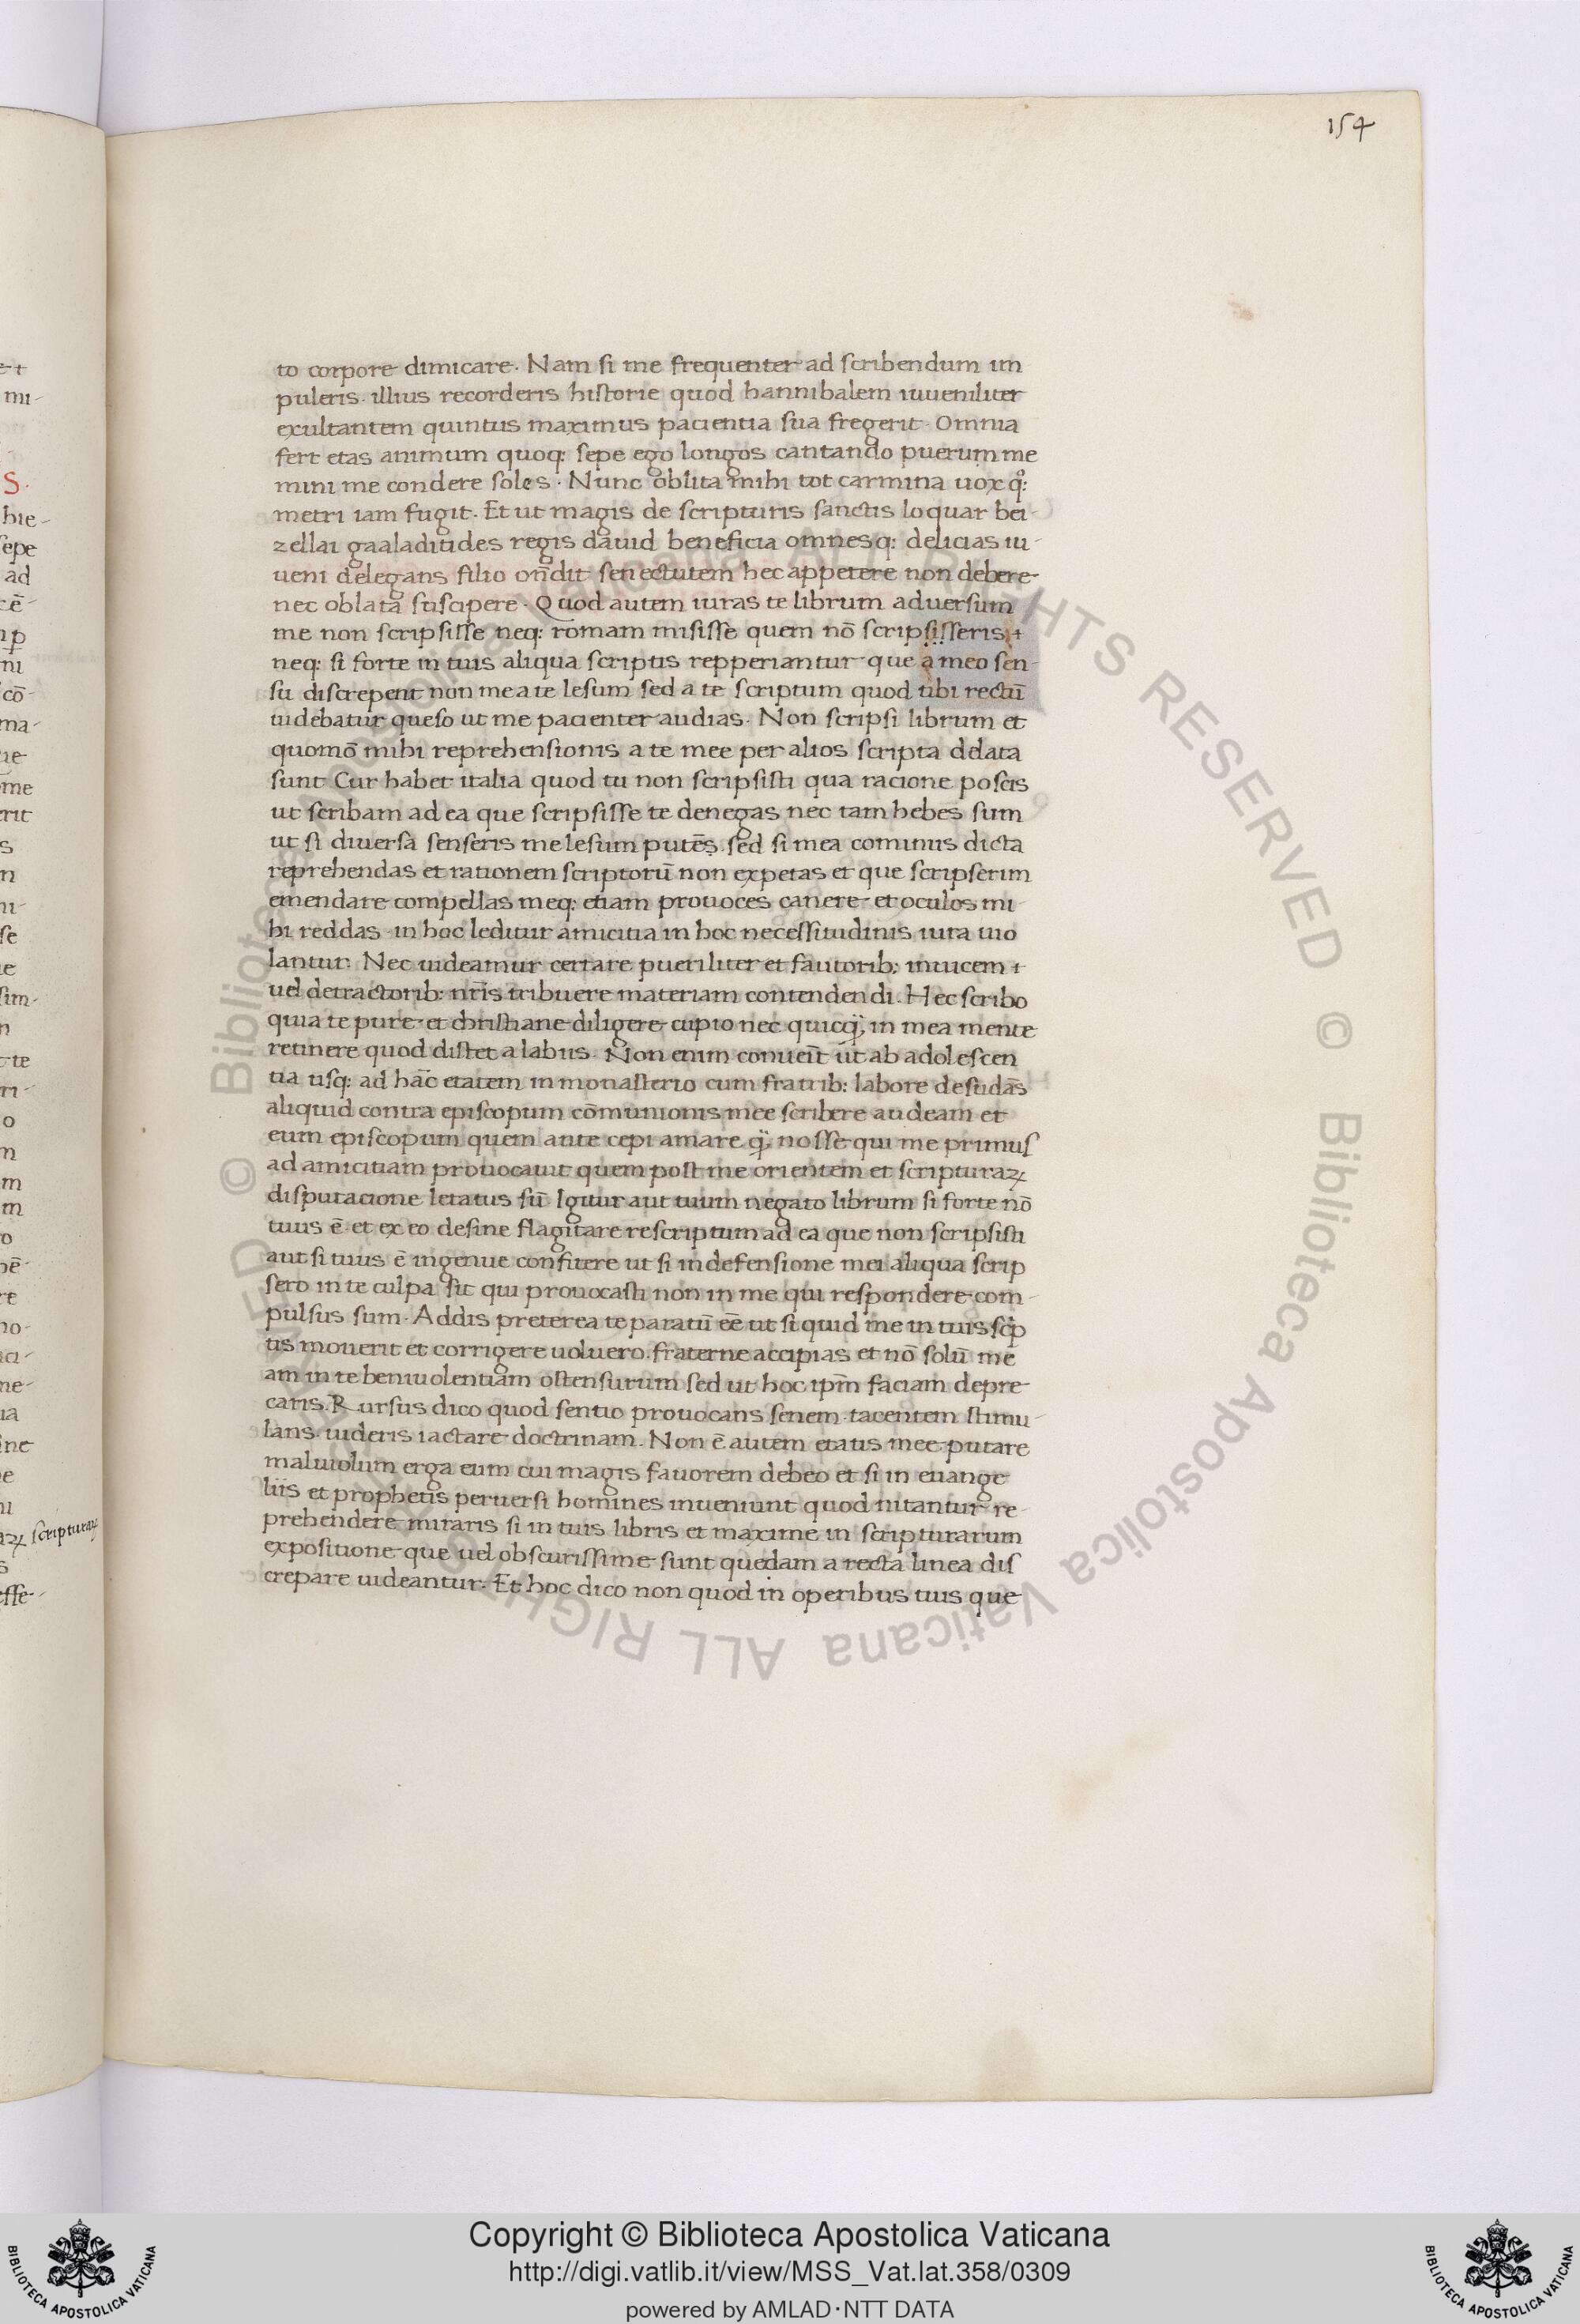 154
to corpore dimicare. Nam si me frequenter ad scribendum im
puleris. illius recorderis historie quod hannibalem iuueniliter
exultantem quintus maximus pacientia sua fregerit. Omnia
fert etas animum quoq: sepe ego longos cantando puerum me
mini me condere soles. Nunc oblita mihi tot carmina uox q̊:
metri iam fugit. Et ut magis de scripturis sanctis loquar bei-
zellai gaaladitides regis dauid beneficia omnesq: delicias iu-
ueni delegans filio on̄dit senectutem hec appetere non debere
nec oblata suscipere. Quod autem iuras te librum aduersum
me non scripsisse neq: romam misisse quem nō scripsisseris
neq: si forte in tuis aliqua scriptis repperiantur que a meo sen-
su discrepent non me a te lesum sed a te scriptum quod tibi rectū
uidebatur queso ut me pacienter audias. Non scripsi librum et
quomō mihi reprehensionis a te mee per alios scripta delata
sunt Cur habet italia quod tu non scripsisti qua racione poscis
ut scribam ad ea que scripsisse te denegas nec tam hebes sum
ut si diuersa senseris me lesum putēs. sed si mea cominus dicta
reprehendas et rationem scriptorū non expetas et que scripserim
emendare compellas meq: etiam prouoces canere et oculos mi
hi reddas in hoc leditur amicitia in hoc necessitudinis iura uio
lantur. Nec uideamur certare pueriliter et fautorib: inuicem
uel detractorib: nr̄is tribuere materiam contendendi. Hec scribo
quia te pure et christiane diligere cupio nec quicq̈ in mea mente
retinere quod distet a labiis. Non enim conueīt ut ab adolescen
tia usq: ad hāc etatem in monasterio cum fratrib: labore desudās
aliquid contra episcopum cōmunionis mee scribere audeam et
eum episcopum quem ante cepi amare q̈ nosse qui me primus
ad amicitiam prouocauit quem post me orientem et scripturaꝝ
disputacione letatus sū Igitur aut tuum negato librum si forte nō
tuus ē et ex eo desine flagitare rescriptum ad ea que non scripsisti
aut si tuus ē ingenue confitere ut si in defensione mei aliqua scrip
sero in te culpa sit qui prouocasti non in me qui respondere com-
pulsus sum. Addis preterea te paratū eē ut si quid me in tuis scp̄
tis mouerit et corrigere uoluero. fraterne accipias et nō solū me
am in te beniuolentiam ostensurum sed ut hoc ip̄m faciam depre
caris. Rursus dico quod sentio prouocans senem tacentem stimu-
lans. uideris iactare doctrinam. Non ē autem etatis mee putare
maliuolum erga eum cui magis fauorem debeo et si in euange
liis et prophetis peruersi homines inueniunt quod nitantur re
prehendere miraris si in tuis libris et maxime in scripturarum
expositione que uel obscurissime sunt quedam a recta linea dis
crepare uideantur. Et hoc dico non quod in operibus tuis que
scripturaꝝ
Copyright © Biblioteca Apostolica Vaticana
http://digi.vatlib.it/view/MSS_Vat.lat.358/0309
powered by AMLAD·NTT DATA